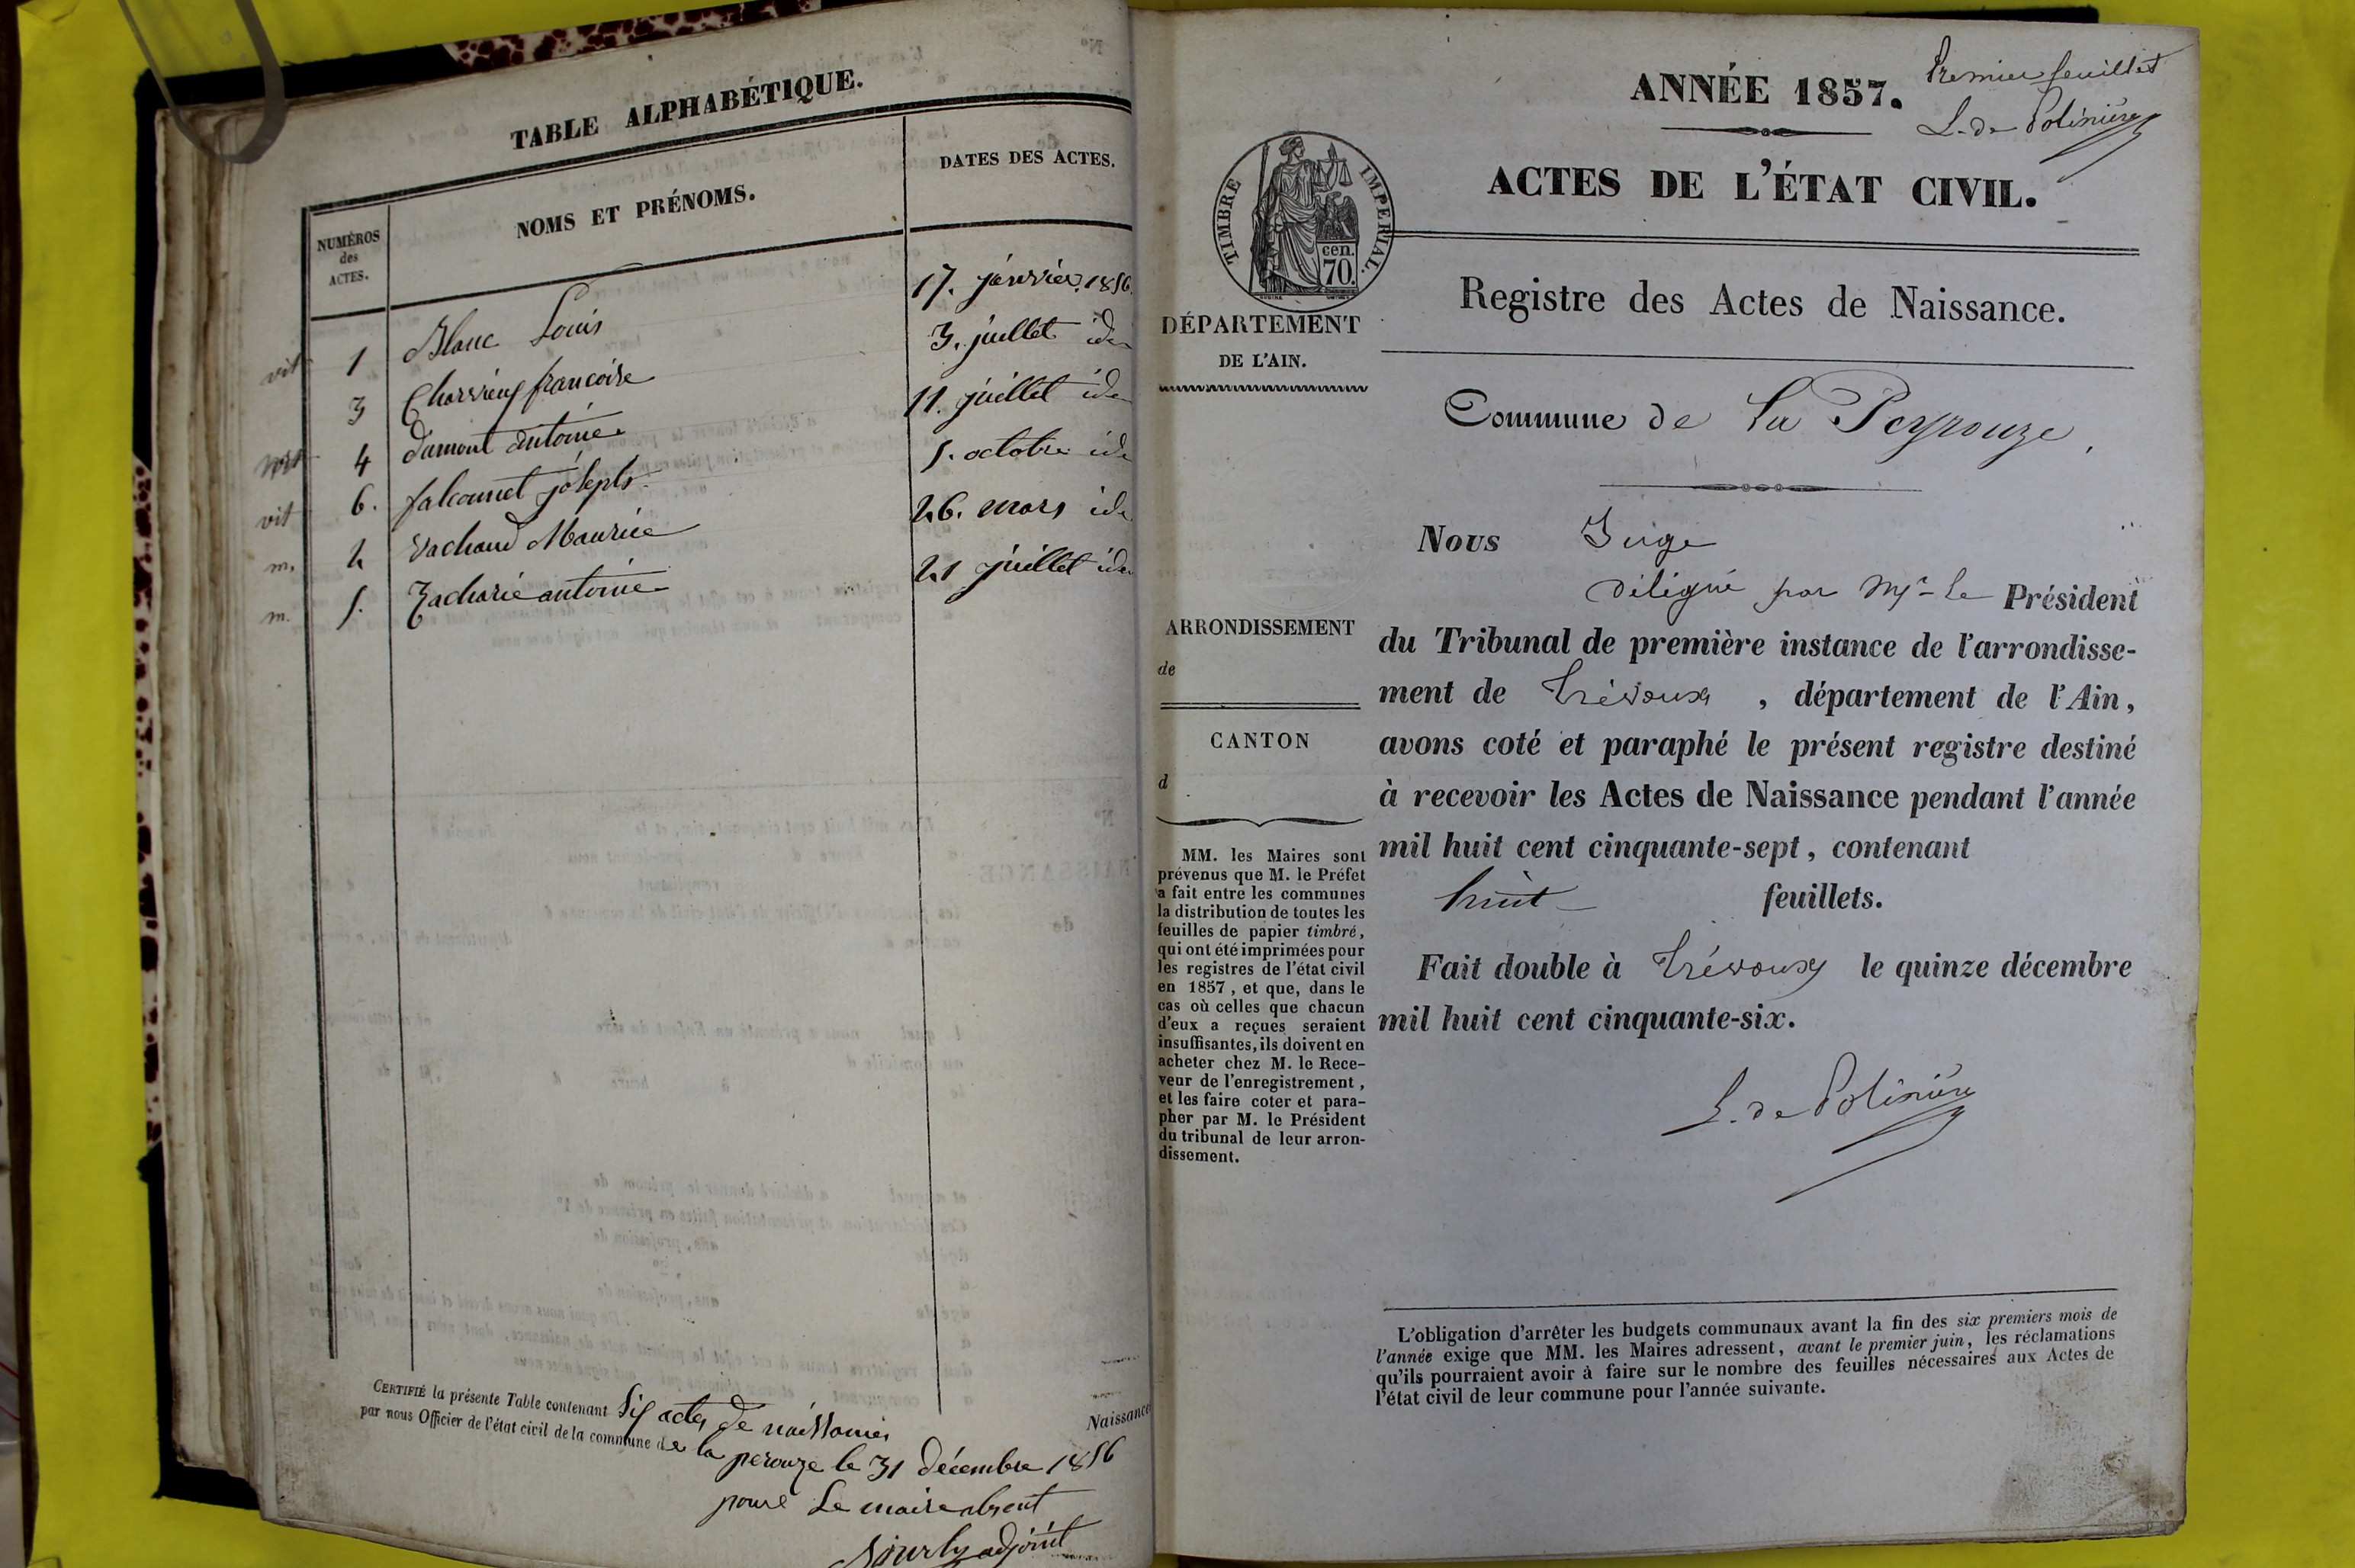 TABLE ALPHABÉTIQUE.
NUMÉROS des ACTES.
NOMS ET PRÉNOMS.
DATES DES ACTES.
vit 1 Blanc Louis 17. janvier 1856
3 françoise 3. juillet ide
mort 4 dumont antoine 11. juillet ide
vit 6. falconnet joseph 5. octobre ide
m. 2 vachaud Maurice 26. mars ide
m. 5. Zacharie antoine 21 juillet ide
CERTIFIÉ la présente Table contenant Six actes de naissances
par nous Officier de l'état civil de la commune de la perouze le 31 décembre 1856
pour Le maire absent
adjoint
Naissance
Premier feuillet
L. de Polinière
ANNÉE 1857.
ACTES DE L'ÉTAT CIVIL.
TIMBRE IMPERIAL.
cen.
70.
Registre des Actes de Naissance.
DÉPARTEMENT
DE L'AIN.
Commune de La Peyrouze,
ARRONDISSEMENT
de
CANTON
d
MM. les Maires sont
prévenus que M. le Préfet
a fait entre les communes
la distribution de toutes les
feuilles de papier timbré,
qui ont été imprimées pour
les registres de l'état civil
en 1857, et que, dans le
cas où celles que chacun
d'eux a reçues seraient
insuffisantes, ils doivent en
acheter chez M. le Rece-
veur de l'enregistrement,
et les faire coter et para-
pher par M. le Président
du tribunal de leur arron-
dissement.
Nous Juge
délégué par Mr le Président
du Tribunal de première instance de l'arrondisse-
ment de Trévoux, département de l'Ain,
avons coté et paraphé le présent registre destiné
à recevoir les Actes de Naissance pendant l'année
mil huit cent cinquante-sept, contenant
huit feuillets.
Fait double à Trévoux le quinze décembre
mil huit cent cinquante-six.
L. de Polinière
L'obligation d'arrêter les budgets communaux avant la fin des six premiers mois de
l'année exige que MM. les Maires adressent, avant le premier juin, les réclamations
qu'ils pourraient avoir à faire sur le nombre des feuilles nécessaires aux Actes de
l'état civil de leur commune pour l'année suivante.